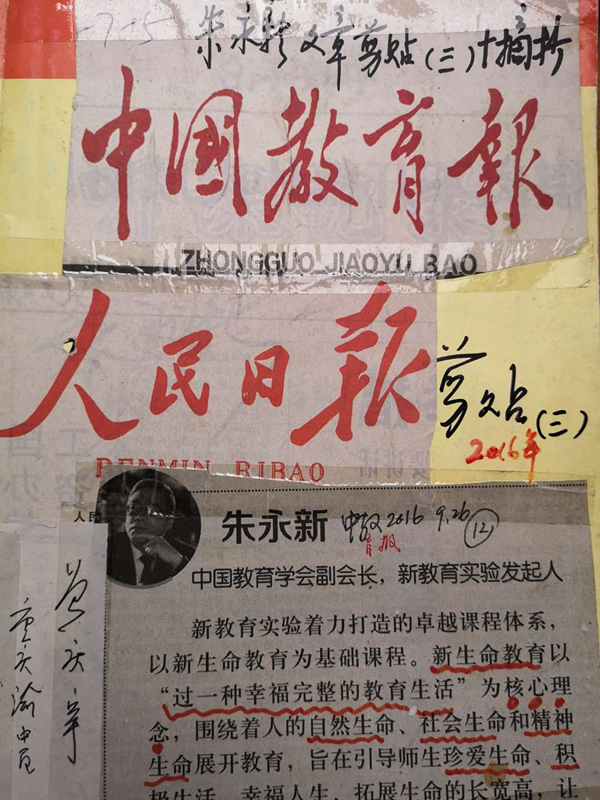 -7-5
朱永新文章剪贴(三)十摘抄
中國教育報
ZHONGGUO JIAOYU BAO
人民日报
RENMIN RIBAO
剪贴(三)
2016年
人民
朱永新
中教2016 9.26 ⑫
育报
中国教育学会副会长，新教育实验发起人
新教育实验着力打造的卓越课程体系，
以新生命教育为基础课程。新生命教育以
“过一种幸福完整的教育生活”为核心理
念，围绕着人的自然生命、社会生命和精神
生命展开教育，旨在引导师生珍爱生命、积
极生活、幸福人生，拓展生命的长宽高，让
重庆渝中区